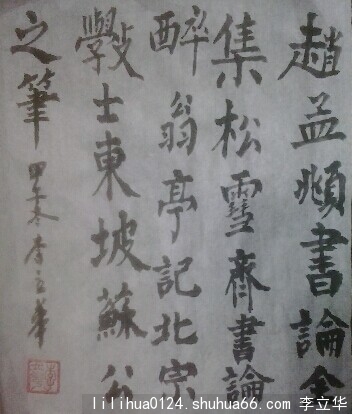 趙孟頫書論全
集松雪齋書論
醉翁亭記北宋
斅士東坡蘇公
之筆
甲午李立華
lilihua0124.shuhua66.com 李立华